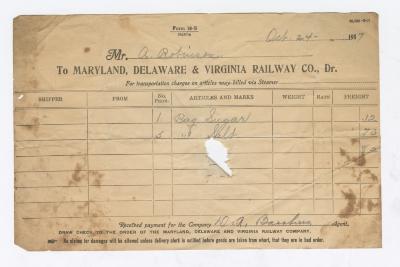 Form 18-S
Oct. 24- 1917
Mr. A. Robinson
To MARYLAND, DELAWARE & VIRGINIA RAILWAY CO., Dr.
For transportation charges on articles way-billed via Steamer
SHIPPER FROM No. Pack's. ARTICLES AND MARKS WEIGHT RATE FREIGHT
1 Bag Sugar .12
5 " Salt
Received payment for the Company, Agent.
DRAW CHECK TO THE ORDER OF THE MARYLAND, DELAWARE AND VIRGINIA RAILWAY COMPANY.
No claims for damages will be allowed unless delivery clerk is notified before goods are taken from wharf, that they are in bad order.